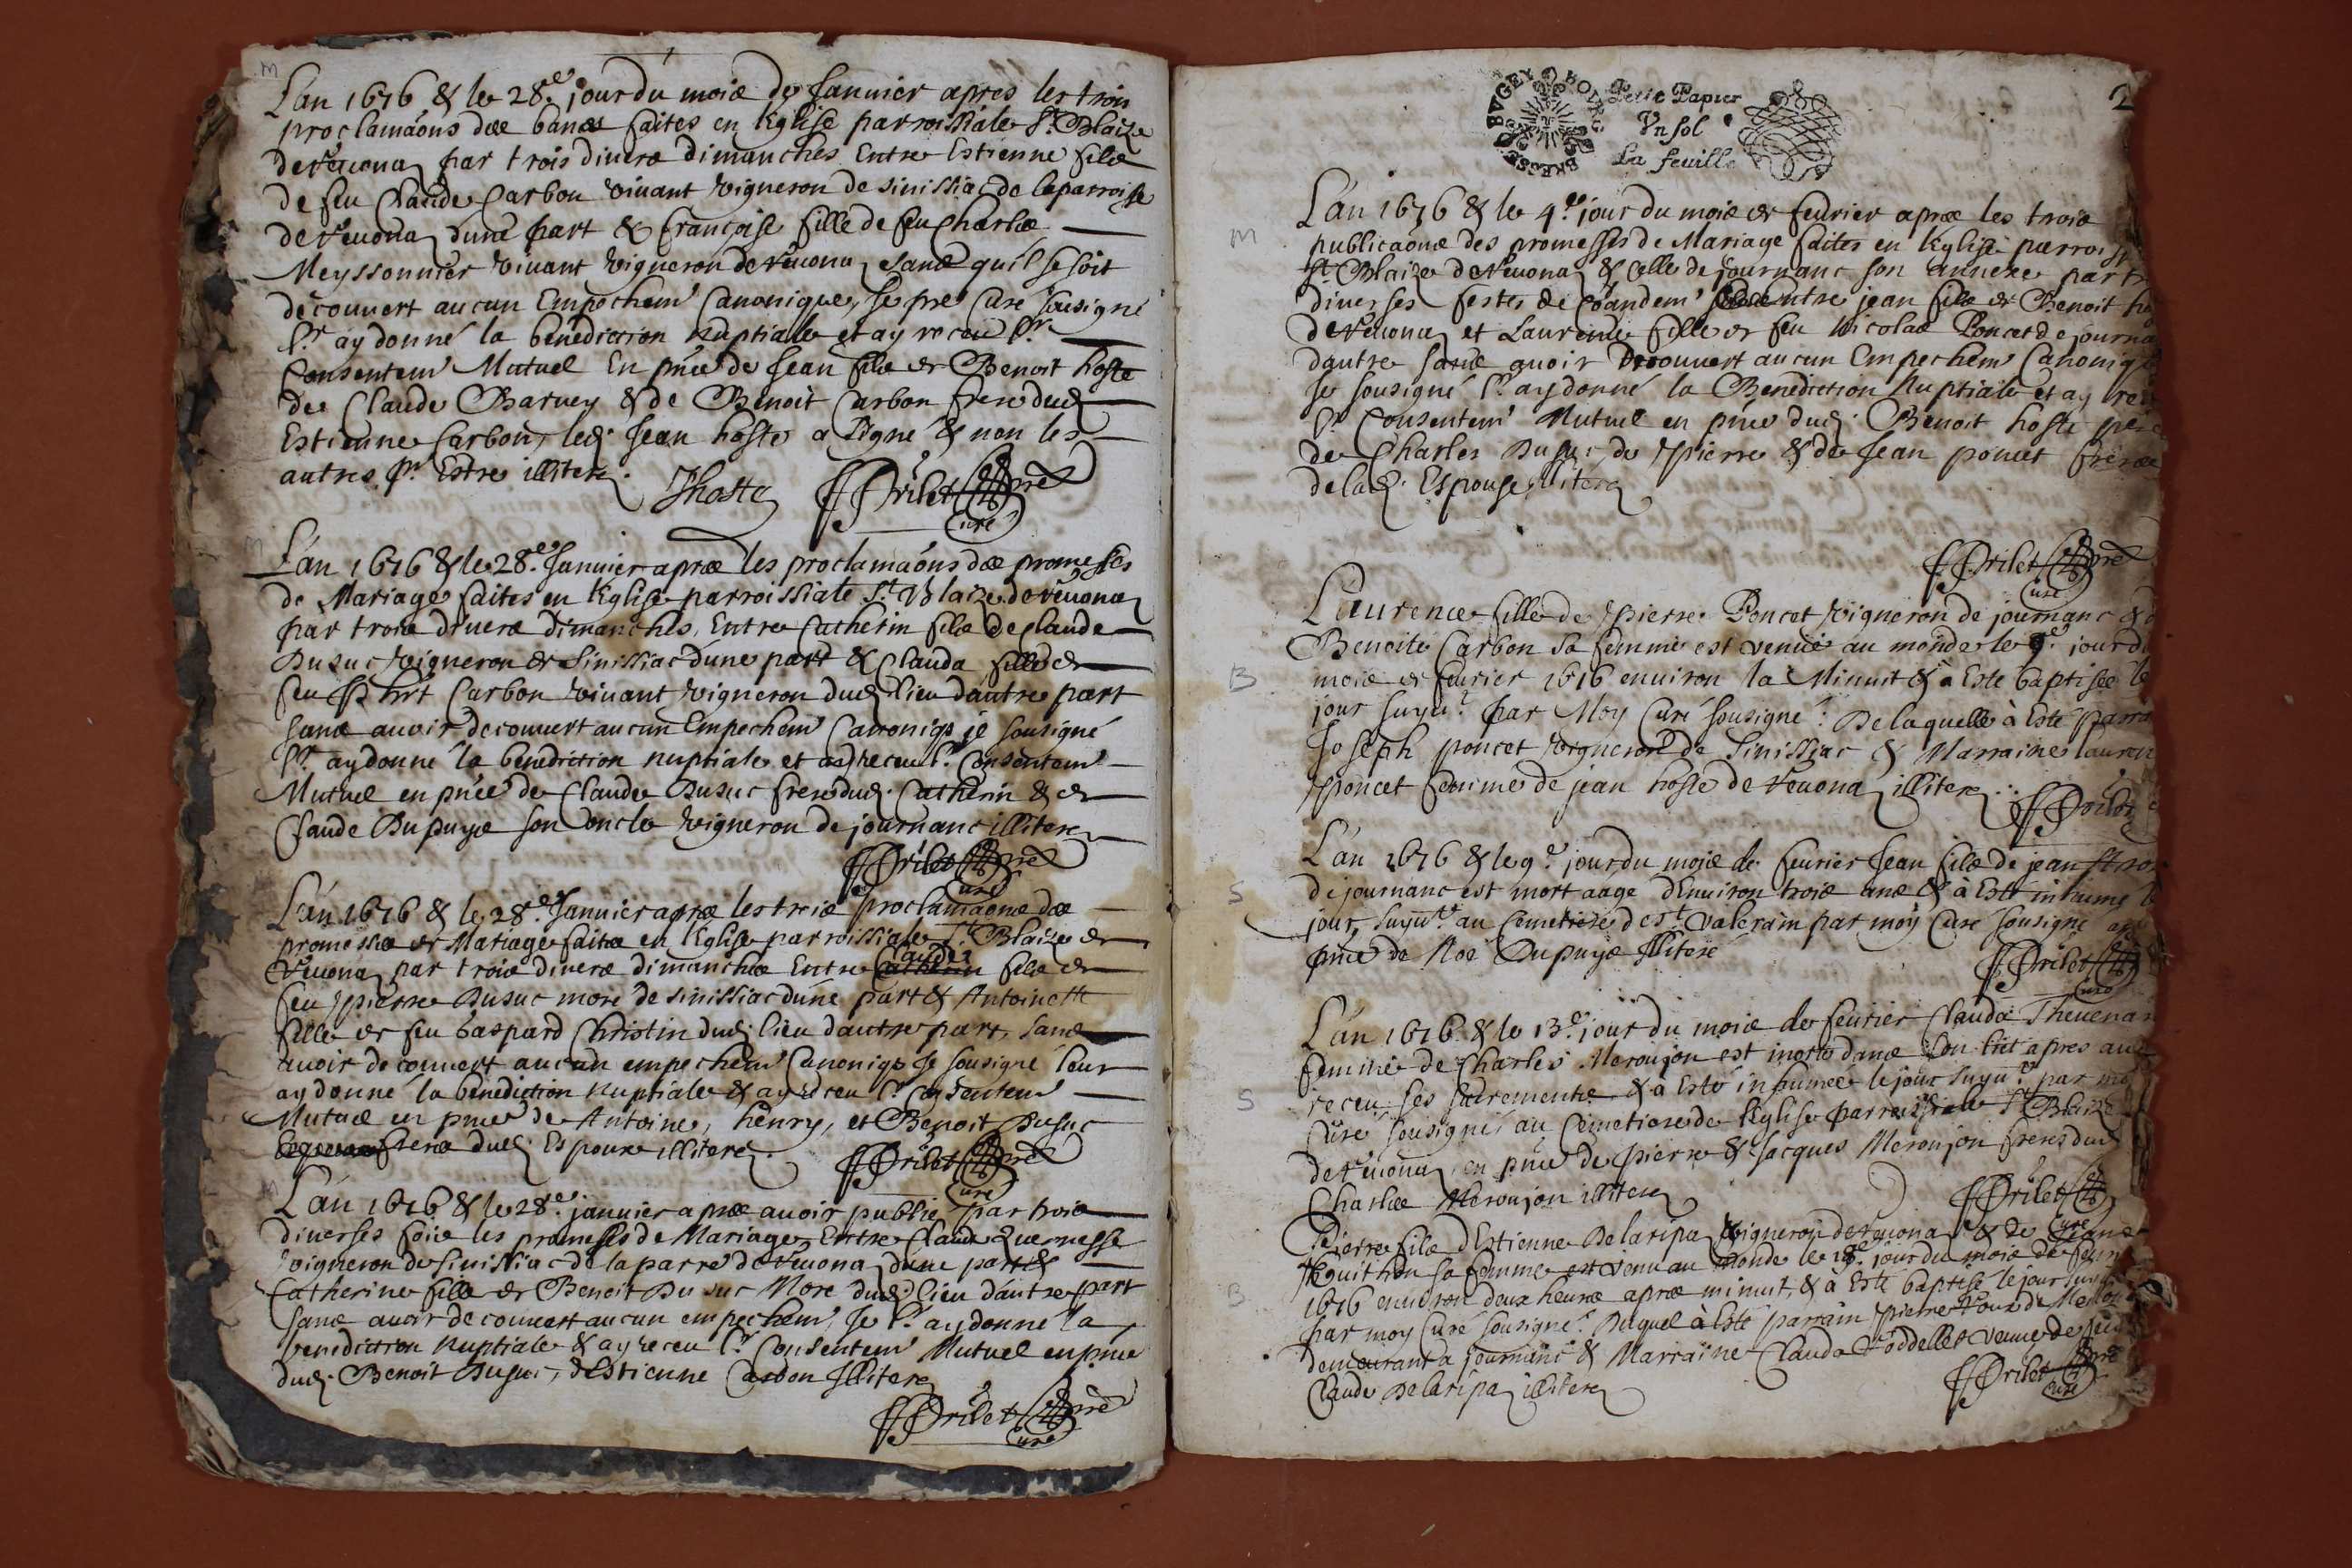 M
L'an 1676 & le 28.e jour du mois de Januier apres les trois
proclamaons des bancs faites en l'Eglise parroissiale St Blaize
de Reuona par trois diuers dimanches Entre Estienne fils
de feu Claude Carbon viuant vigneron de Sinissiac de la parroisse
de Reuona d'une part & Françoise fille de feu Charles
Meyssonnier viuant vigneron de Reuona sans qu'il se soit
découuert aucun Empechemt Canonique, Je pre Curé sousigné
lr ay donné la bénédiction nuptiale et ay receu lr
Consentemt Mutuel En pnce de Jean fils de Benoit hoste
de Claude Baruey & de Benoit Carbon frere dud.
Estienne Carbon, led. Jean hoste a signé & non les
autres pr Estre illiteres.
Jhoste FDrilet pre
Curé
M
L'an 1676 & le 28.e Januier apres les proclamaons des promesses
de Mariage faites en l'Eglise parroissiale St Blaize de Reuona
par trois diuers dimanches, Entre Catherin fils de Claude
Dusuc vigneron de Sinissiac d'une part & Clauda fille de
feu Carbon viuant vigneron dud. lieu d'autre part
sans auoir decouuert aucun Empechemt Canoniq. je sousigné
lr ay donné la bénédiction nuptiale et ay receu lr Consentemt
Mutuel en pnce de Claude Dusuc frere dud. Catherin & de
Claude Dupuys son oncle vigneron de journanc illiteres
FDrilet pre
Curé
L'an 1676 & le 28.e Januier apres les trois proclamaons des
promesses de Mariage faites en l'Eglise parroissiale St Blaize de
Reuona par trois diuers dimanches Entre Claude fils de
feu pierre Dusuc more de sinissiac d'une part & Antoinette
fille de feu Gaspard Christin dud. lieu d'autre part, sans
auoir decouuert aucun empechemt Canoniq. Je sousigné leur
ay donné la bénédiction nuptiale & ay receu lr Consentemt
Mutuel en pnce de Antoine, henry, et Benoit Dusuc
freres dud. Espoux illiteres
FDrilet pre
Curé
M
L'an 1676 & le 28.e januier apres auoir publié par trois
diuerses fois les promesses de Mariage Entre Claude Quernesse
vigneron de Sinissiac de la parre de Reuona d'une part &
Catherine fille de Benoit Dusuc More dud. lieu d'autre part
sans auoir decouuert aucun empechemt, Je lr ay donné la
benediction nuptiale & ay receu lr Consentemt Mutuel en pnce
dud. Benoit Dusuc, d'Estienne Carbon Illiteres
FDrilet pre
Curé
2
BRESSE BVGEY BOVRG
Petit Papier
Vn sol
La feuille
M
L'an 1676 & le 4.e jour du mois de feurier apres les trois
publicaons des promesses de Mariage faites en l'Eglise parroiss
St Blaize de Reuona & Celle de journanc son annexe par tr
diuerses festes de Coandemt Entre jean fils de Benoit ho
de Reuona et Laurence fille de feu Nicolas Poncet de journa
d'autre sans auoir decouuert aucun Empechemt Canoniq
Je sousigné lr ay donné la Benediction Nuptiale et ay rec
lr Consentemt Mutuel en pnce dud. Benoit hoste père
de Charles Dusuc, de pierre & de Jean poncet freres
de lad. Espouse illiteres
FDrilet pre
Curé
B
Laurence fille de pierre Poncet vigneron de journanc & d
Benoite Carbon sa femme est venüe au monde le jour du
mois de feurier 1676 enuiron la Minuit & à Esté baptisée le
jour suyut par Moy Curé sousigné. De laquelle à Esté parra
Joseph poncet vigneron de Sinissiac & Marraine laurence
poncet femme de jean hoste de Reuona illiteres
FDrilet
S
L'an 1676 & le 9.e jour du mois de feurier Jean fils de jean
de journanc est mort aagé d'Enuiron trois ans & à Esté inhumé le
jour suyut au Cemetiere de St Valerain par moy Curé sousigné
pnce de Noé Dupuys Illiteré
FDrilet
Curé
S
L'an 1676 & le 13.e jour du mois de feurier Clauda Theuenar
femme de Charles Meroujon est morte dans son lict apres auoir
receu ses sacrements & à Esté inhumée le jour suyut par moy
Curé sousigné au Cimetiere de l'Eglise parroissiale St Blaize
de Reuona en pnce de pierre & Jacques Meroujon freres dud
Charles Meroujon illiteres
FDrilet
Curé
B
Pierre fils d'Estienne Delaripa vigneron de Reuona & de
sa femme est venu au monde le 18.e jour du mois de feurier
1676 enuiron deux heures apres minuit & à Esté baptisé le jour suyu
par moy Curé sousigné. Duquel à Esté parrain pierre
demeurant a journanc & Marraine Clauda veuue de feu
Claude Delaripa illiteres
FDrilet pre
Curé